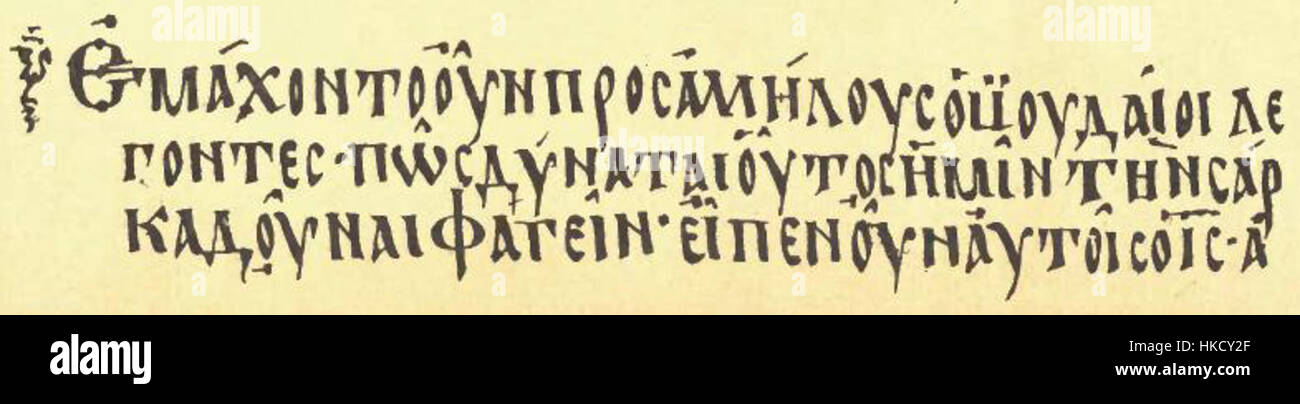 Ἐμάχοντο οὖν πρὸς ἀλλήλους οἱ ϊουδάιοι λέ
γοντες · πῶς δύναται οὗτος ἡμῖν τὴν σάρ
κα δοῦναι φαγεῖν · εἶπεν οὖν αὐτοῖς ὁ ις · ἀ
alamy
Image ID: HKCY2F
www.alamy.com